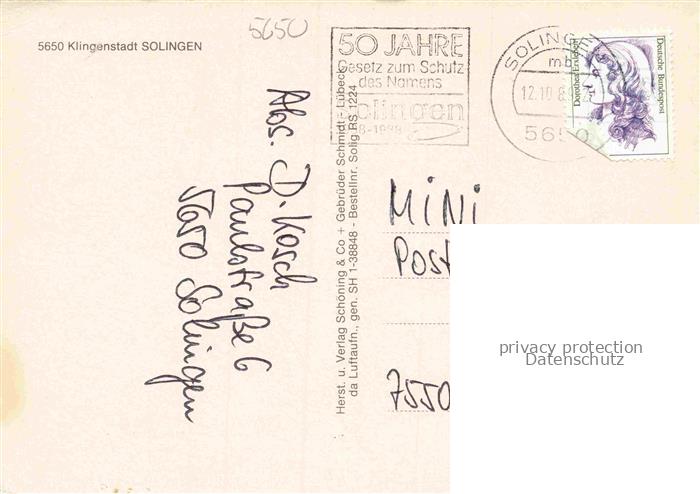 5650
5650 Klingenstadt SOLINGEN
50 JAHRE
Gesetz zum Schutz
des Namens
Solingen
8-1988
SOLINGEN
mb
12.10.8
5650
Dorothea Erxleben
Deutsche Bundespost
Abs. D. Kosch
Paulstraße 6
5650 Solingen
Herst. u. Verlag Schöning & Co + Gebrüder Schmidt · Lübeck
da Luftaufn., gen. SH 1-38848 - Bestellnr. Solig RS 1224
MiNi
Post
7550
privacy protection
Datenschutz